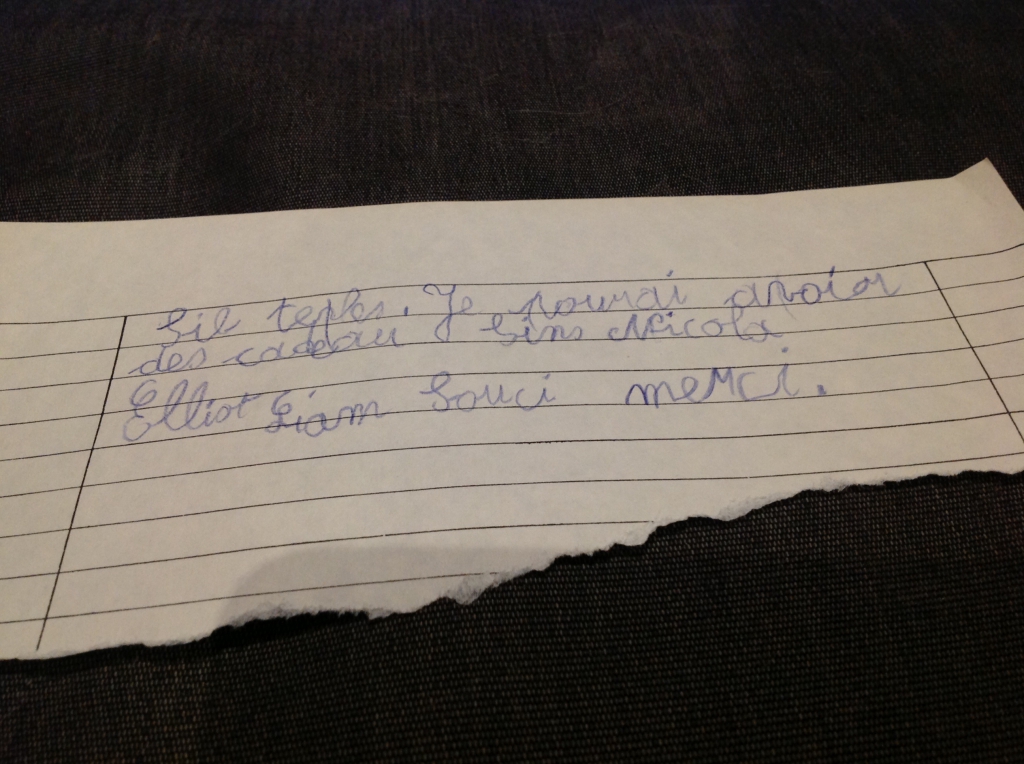 Sil teples. Je pourai avoir
des cadeau Sins Nicola
Elliot Liam Souci merci.